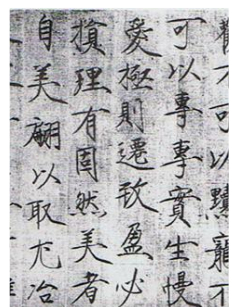 歡不可以黷寵不
可以專專實生慢
愛極則遷致盈必
損理有固然美者
自美翩以取尤冶